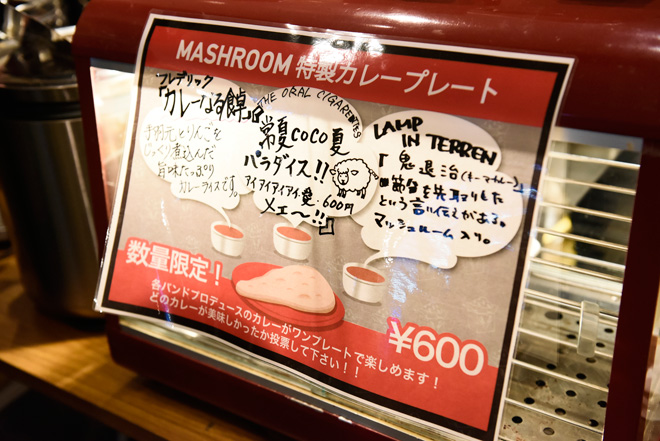 MASHROOM 特製カレープレート
フレデリック
「カレーなる餌」
手羽元とりんごを
じっくり煮込んだ
旨味たっぷり
カレーライスです。
THE ORAL CIGARETTES
常夏COCO夏
パラダイス!!
アイアイアイアイ愛・600円
メェ〜!!
LAMP
IN TERREN
「鬼退治(キーマカレー)」
節分を先取りした
という言い伝えがある。
マッシュルーム入り。
数量限定！
各バンドプロデュースのカレーがワンプレートで楽しめます！
どのカレーが美味しかったか投票して下さい！！
¥600